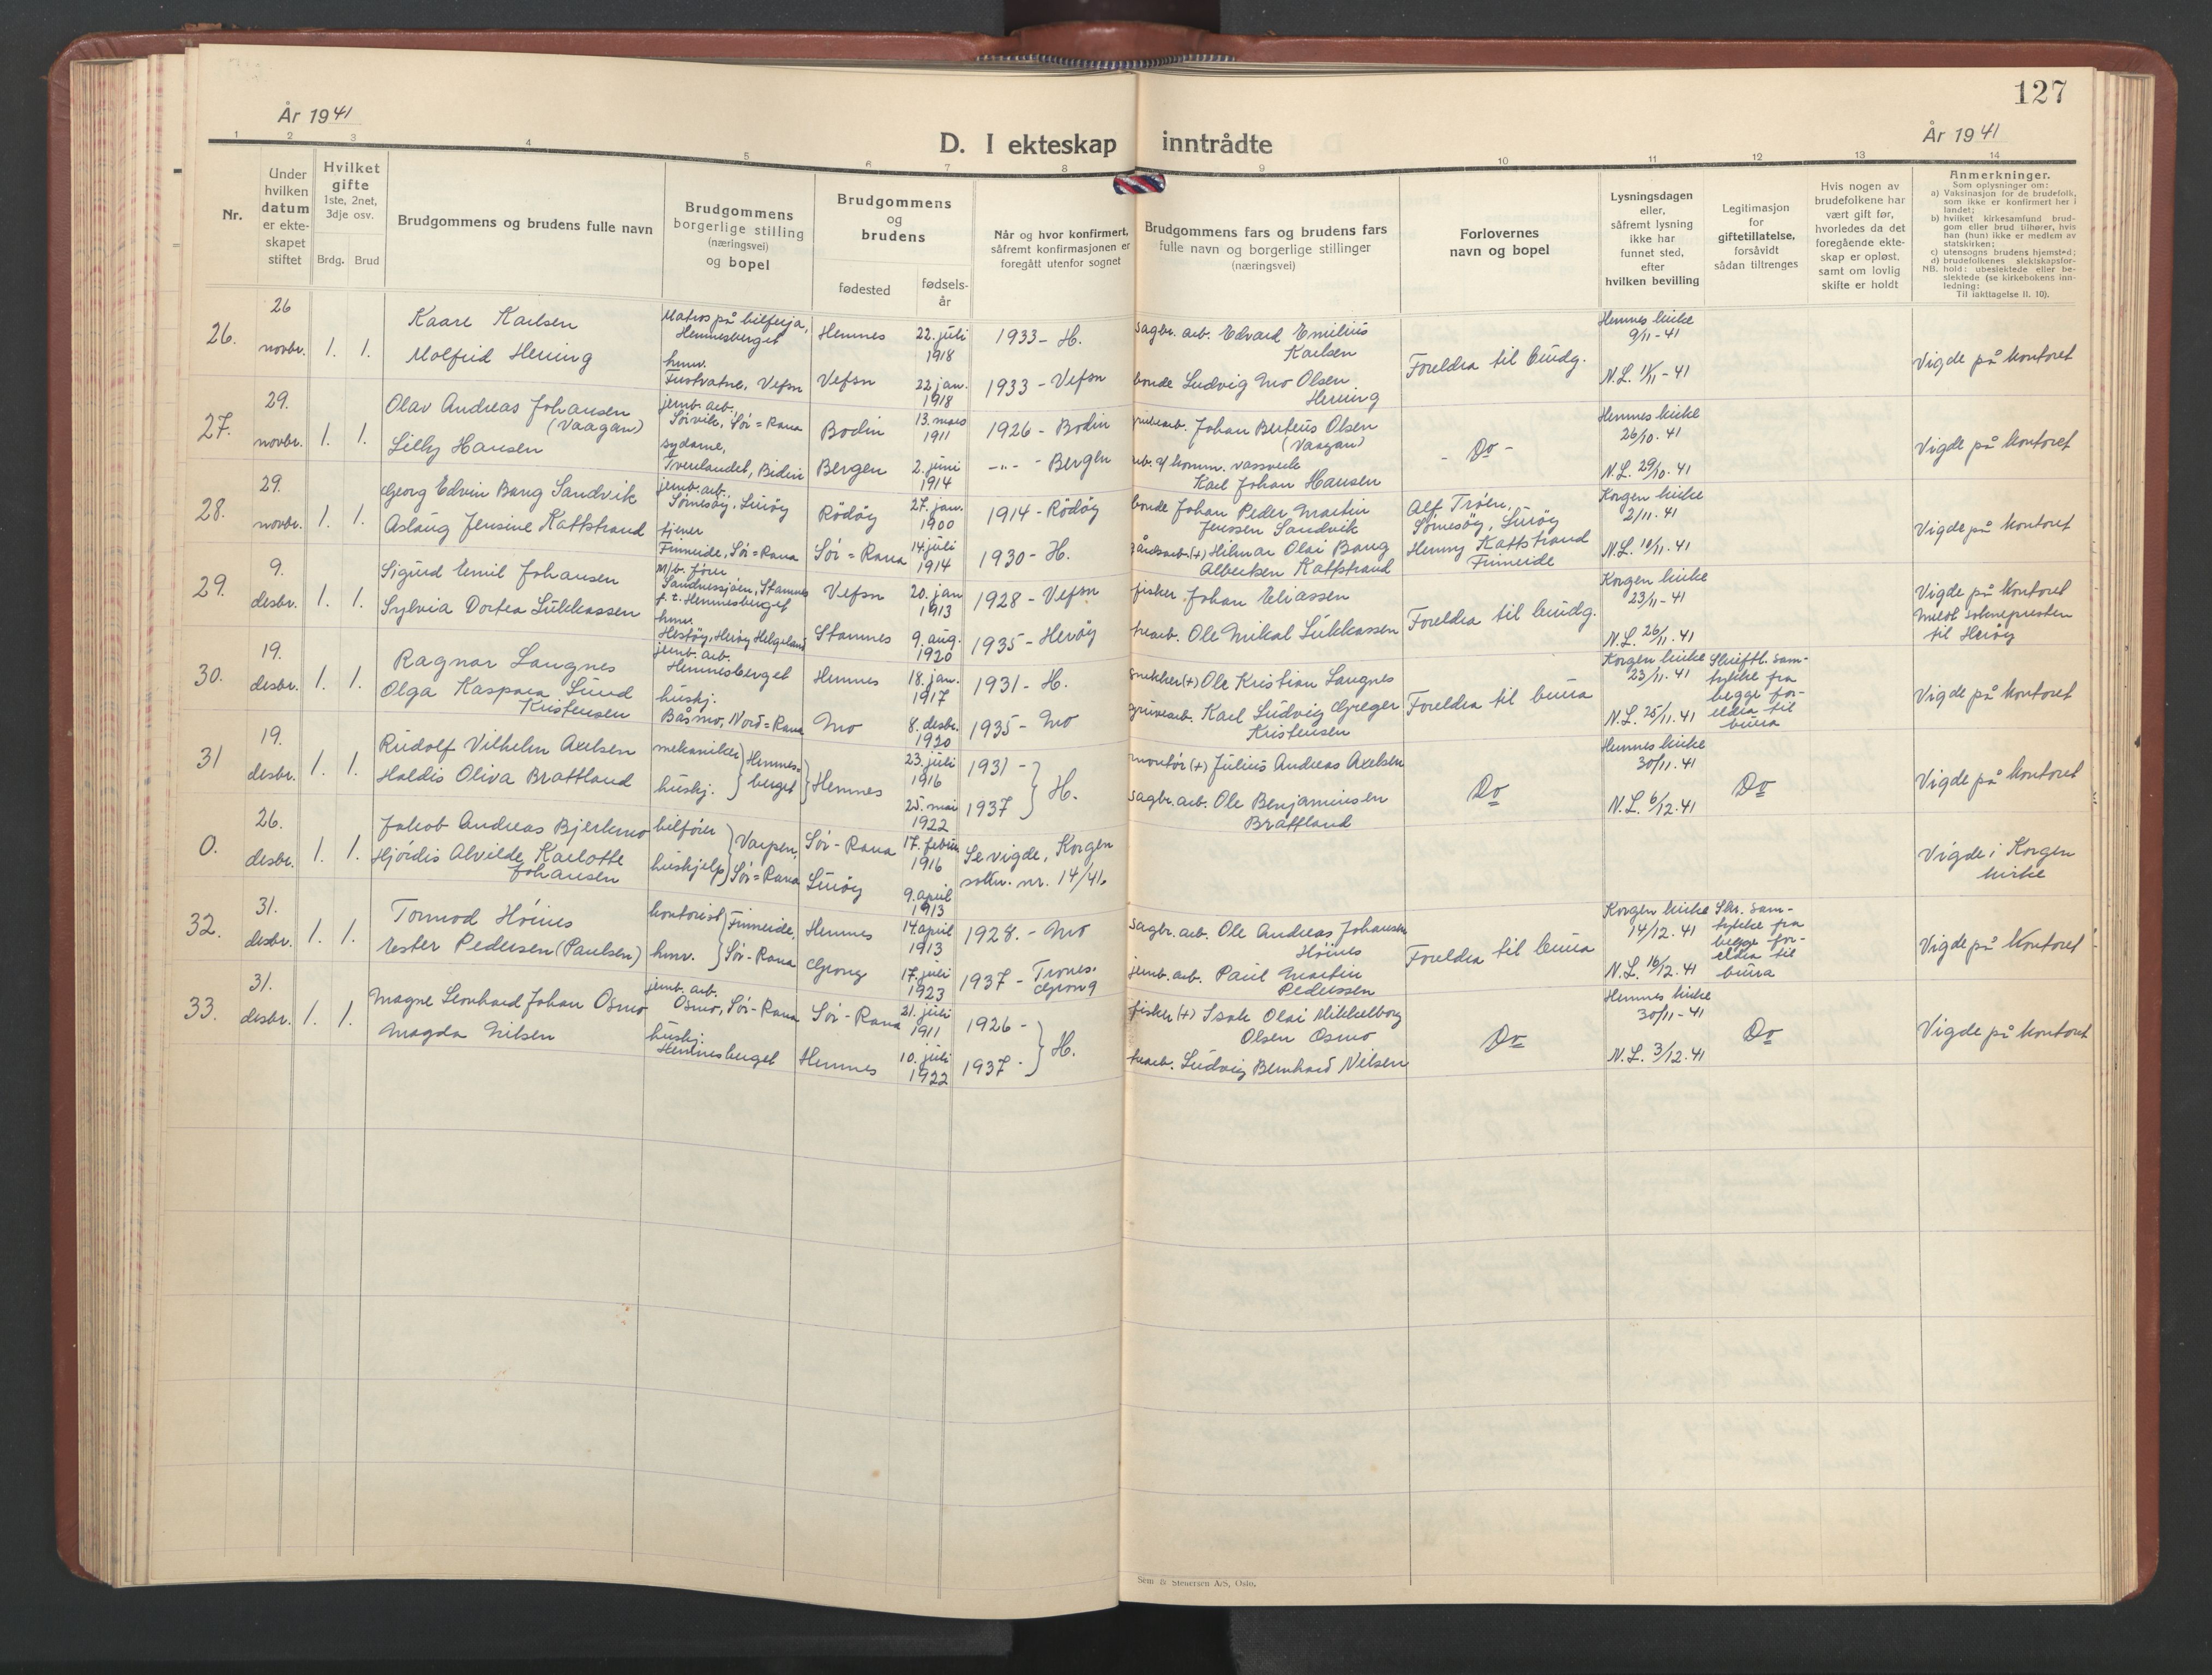 127
År 1941
År 1941
D. I ekteskap inntrådte
1 2 3 4 5 6 7 8 9 10 11 12 13 14
Nr.
Under
hvilken
datum
er ekte-
skapet
stiftet
Hvilket
gifte
1ste, 2net,
3dje osv.
Brdg. Brud
Brudgommens og brudens fulle navn
Brudgommens
borgerlige stilling
(næringsvei)
og bopel
Brudgommens
og
brudens
fødested
fødsels-
år
Når og hvor konfirmert,
såfremt konfirmasjonen er
foregått utenfor sognet
Brudgommens fars og brudens fars
fulle navn og borgerlige stillinger
(næringsvei)
Forlovernes
navn og bopel
Lysningsdagen
eller,
såfremt lysning
ikke har
funnet sted,
efter
hvilken bevilling
Legitimasjon
for
giftetillatelse,
forsåvidt
sådan tiltrenges
Hvis nogen av
brudefolkene har
vært gift før,
hvorledes da det
foregående ekte-
skap er opløst,
samt om lovlig
skifte er holdt
Anmerkninger.
Som oplysninger om:
a) Vaksinasjon for de brudefolk,
som ikke er konfirmert her i
landet;
b) hvilket kirkesamfund brud-
gom eller brud tilhører, hvis
han (hun) ikke er medlem av
statskirken;
c) utensogns brudens hjemsted;
d) brudefolkenes slektskapsfor-
NB. hold: ubeslektede eller be-
slektede (se kirkebokens inn-
ledning:
Til iakttagelse II. 10).
26.
26
novbr.
1. 1.
Kaare Karlsen
Molfrid Hering
Matros på bilferja,
Hemnesberget
hmv.
Fustvatne, Vefsn
Hemnes
Vefsn
22. juli
1918
22. jan.
1918
1933 - H.
1933 - Vefsn
sagbr. arb. Edvard Emilius
Karlsen
bonde Ludvig Mo Olsen
Hering
Foreldra til brudg.
Hemnes kirke
9/11-41
N.L. 11/11-41
Vigde på kontoret
27.
29.
novbr.
1. 1.
Olav Andreas Johansen
(Vaagan)
Lilly Hansen
jernb. arb.,
Sørvik, Sør=Rana
sydame,
Tverlandet, Bodin
Bodin
Bergen
13. mars
1911
2. juni
1914
1926 - Bodin
-"- - Bergen
Johan Berteus Olsen
(Vaagan)
arb. v/ komm. vassverk
Karl Johan Hansen
- Do -
Hemnes kirke
26/10.41
N.L. 29/10.41
Vigde på kontoret
28.
29.
novbr.
1. 1.
Georg Edvin Bang Sandvik
Aslaug Jensine Kattstrand
jernb. arb.,
Sørnesøy, Lurøy
tjener
Finneide, Sør=Rana
Rödøy
Sør=Rana
27. jan.
1900
14. juli
1914
1914 - Rödøy
1930 - H.
bonde Johan Peder Martin
Jenssen Sandvik
gårdsarb. (+) Hilmar Olai Bang
Albertsen Kattstrand
Alf Trøen,
Sørnesøy, Lurøy
Henny Kattstrand
Finneide
Korgen kirke
2/11.41
N.L. 10/11.41
Vigde på kontoret
29.
9.
desbr.
1. 1.
Sigurd Emil Johansen
Sylvia Dortea Lukkassen
M/b. fører
Sandnessjøen, Stamnes
f.t. Hemnesberget
hmv.
Hestøy, Herøy Helgeland
Vefsn
Stamnes
20. jan
1913
9. aug.
1920
1928 - Vefsn
1935 - Herøy
fisker Johan Eliassen
trearb. Ole Mikal Lukkassen
Foreldra til brudg.
Korgen kirke
23/11-41
N.L. 26/11.41
Vigde på kontoret
Meldt soknepresten
til Herøy
30.
19.
desbr.
1. 1.
Ragnar Langnes
Olga Kaspara Lund
Kristensen
jernb. arb.
Hemnesberget
huskj.
Båsmo, Nord=Rana
Hemnes
Mo
18. jan.
1917
8. desbr.
1920
1931 - H.
1935 - Mo
snekker (+) Ole Kristian Langnes
gruvearb. Karl Ludvig Greger
Kristensen
Foreldra til brura
Korgen kirke
23/11.41
N.L. 25/11.41
Skriftl. sam-
tykke fra
begge for-
eldra til
brura
Vigde på kontoret
31
19.
desbr.
1. 1.
Rudolf Vilhelm Axelsen
Haldis Oliva Brattland
mekaniker
huskj.
Hemnes=
berget
Hemnes
23. juli
1916
25. mai
1922
1931 -
1937
H.
montør (+) Julius Andreas Axelsen
sagbr. arb. Ole Benjaminsen
Brattland
Do
Hemnes kirke
30/11.41
N.L. 6/12.41
Do
Vigde på kontoret
0.
26.
desbr.
1. 1.
Jakob Andreas Bjerkmo
Hjørdis Alvilde Karlotte
Johansen
bilfører
huskjelp
Varpen,
Sør=Rana
Sør-Rana
Lurøy
17. febru.
1916
9. april
1913
Se vigde, Korgen
sokn. nr. 14/41.
Vigde i Korgen
kirke
32.
31.
desbr.
1. 1.
Tormod Høines
Ester Pedersen (Paulsen)
kontorist
hmv.
Finneide,
Sør-Rana
Hemnes
Grong
14. april
1913
17. juli
1923
1928. - Mo
1937 - Trones.
Grong
sagbr. arb. Ole Andreas Johansen
Höines
jernb. arb. Paul Martin
Pedersen
Foreldra til brura
Korgen kirke
14/12.41
N.L. 16/12.41
Skr. sam-
tykke fra
begge for-
eldra til
brura
Vigde på kontoret
33.
31.
desbr.
1. 1.
Magne Leonhard Johan Osmo
Magda Nilsen
jernb. arb.
Osmo, Sør-Rana
huskj.
Hemnesberget
Sør-Rana
Hemnes
21. juli
1911
10. juli
1922
1926 -
1937 -
H.
fisker (+) Isak Olai Mikkelborg
Olsen Osmo
trearb. Ludvig Bernhard Nilsen
Do
Hemnes kirke
30/11-41
N.L. 3/12.41
Do
Vigde på kontoret
Sem & Stenersen A/S, Oslo.